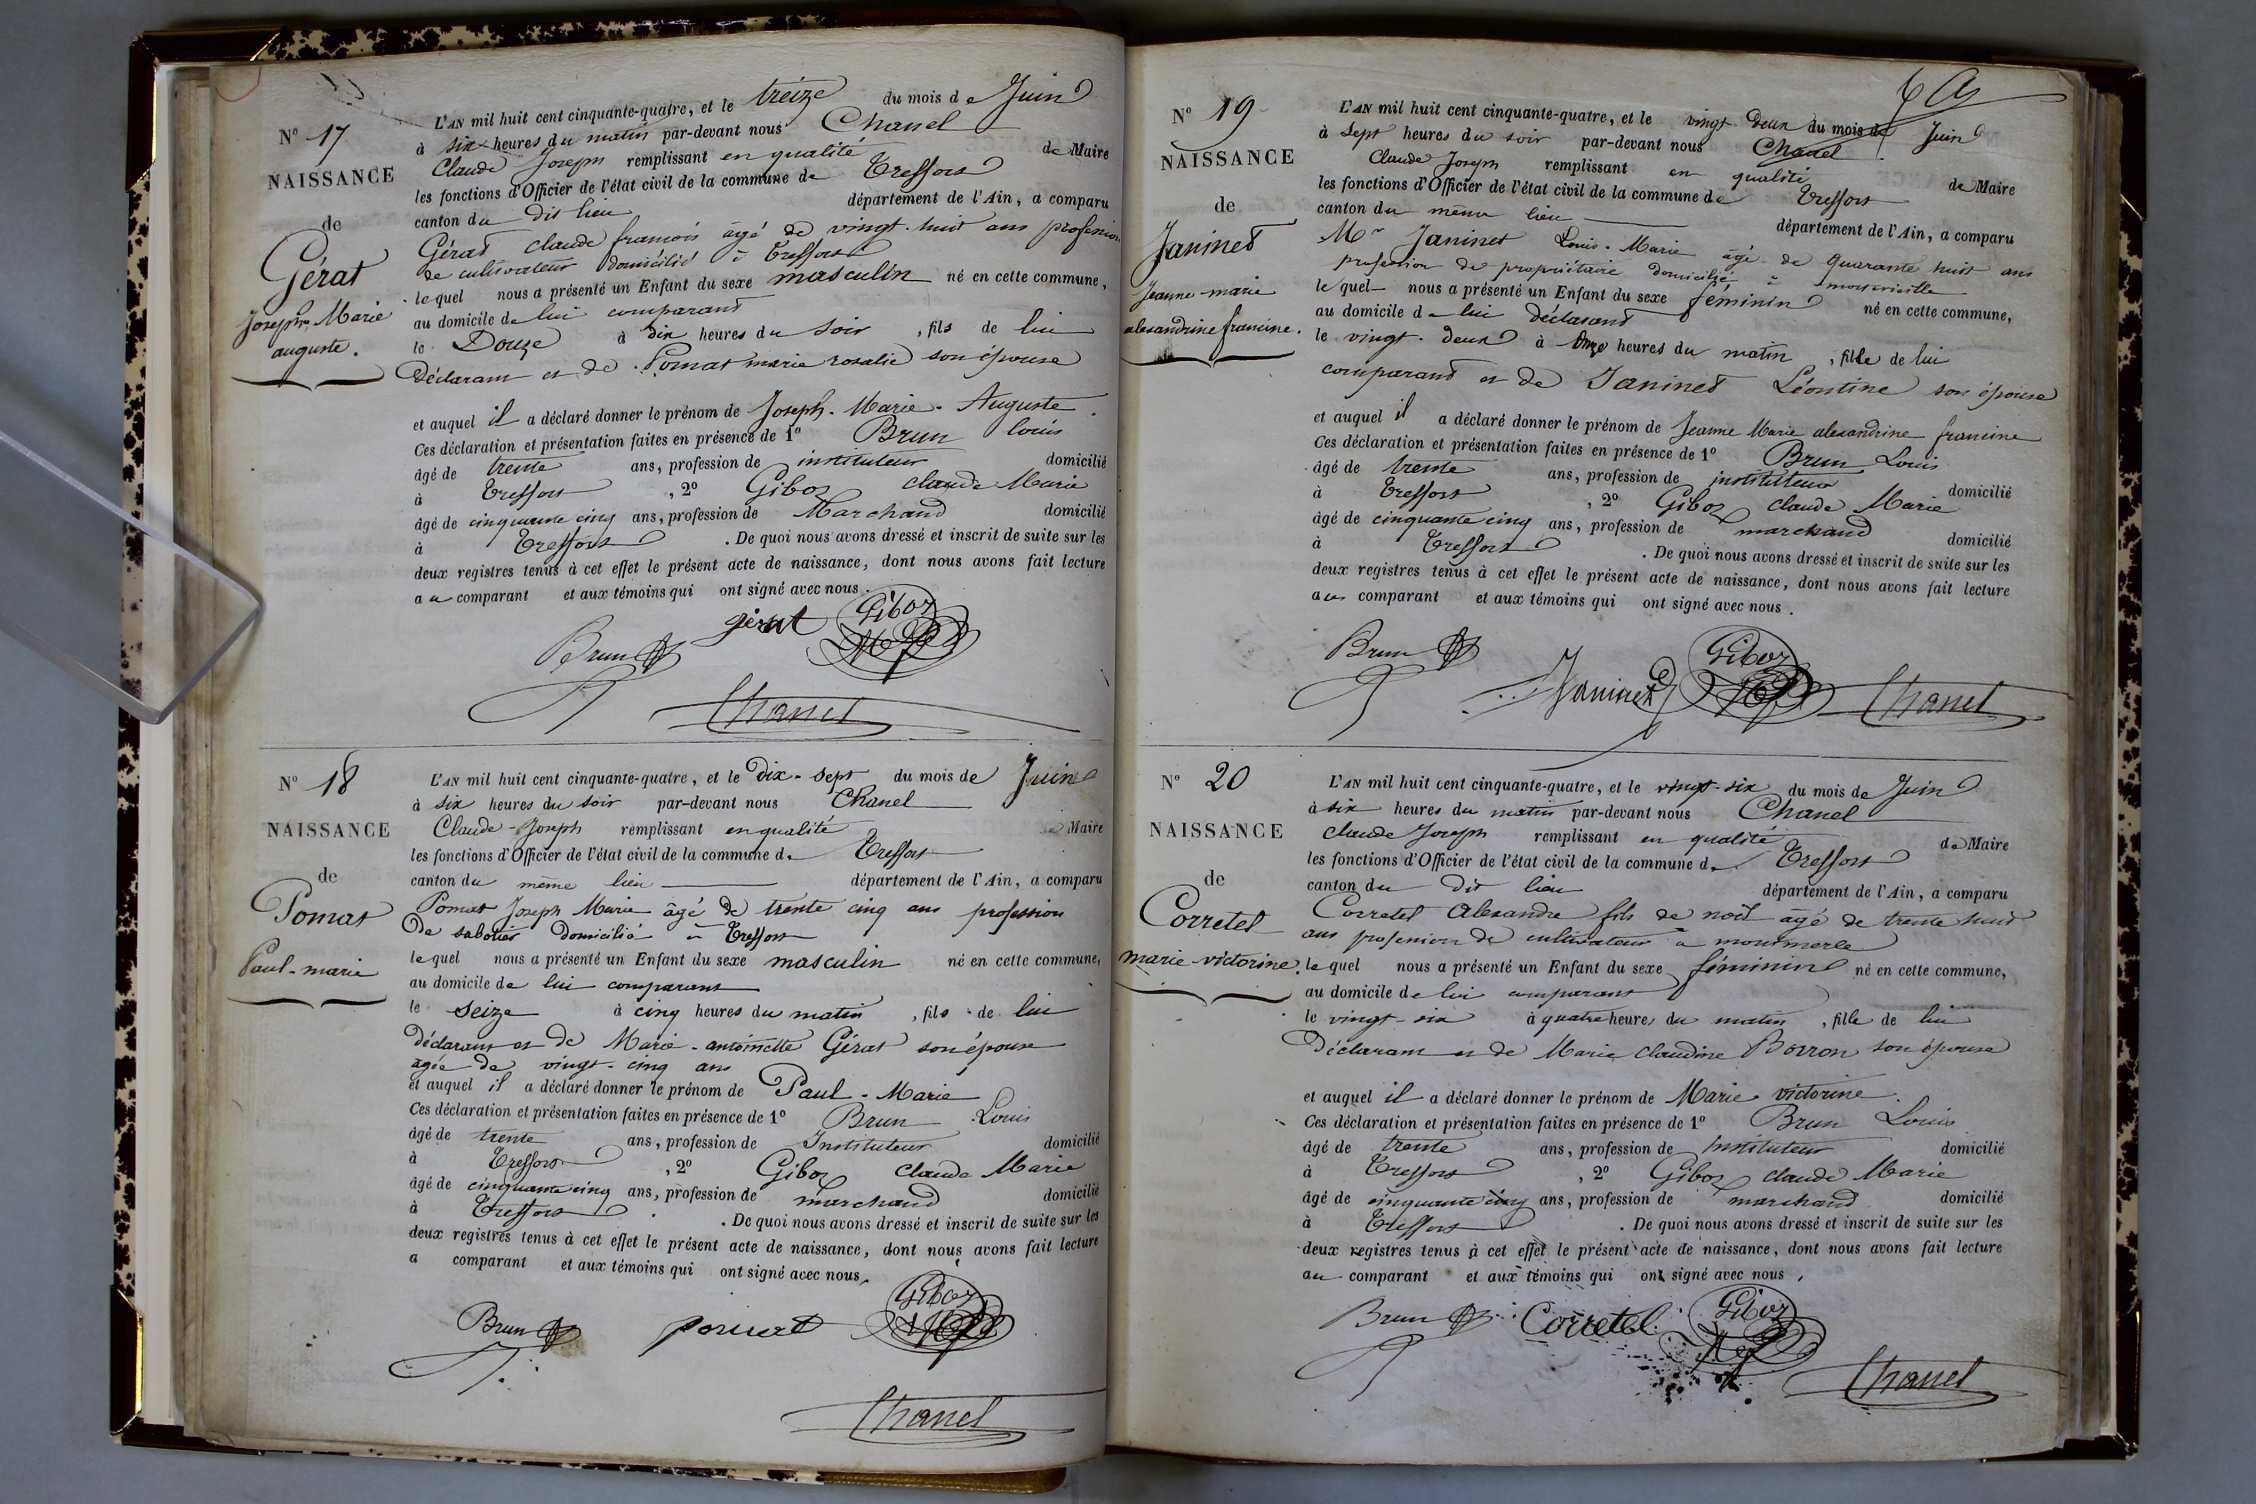 N° 17
NAISSANCE
de
Gérat
Joseph Marie
auguste.
L'AN mil huit cent cinquante-quatre, et le treize du mois de Juin
à six heures du matin par-devant nous Chanel
Claude Joseph remplissant en qualité de Maire
les fonctions d'Officier de l'état civil de la commune de Treffort
canton du dit lieu département de l'Ain, a comparu
Gérat claude françois âgé de vingt-huit ans profession
de cultivateur domicilié à Treffort
lequel nous a présenté un Enfant du sexe masculin né en cette commune,
au domicile de lui comparant
le Douze à dix heures du soir, fils de lui
Déclarant et de Pomat marie rosalie son épouse
et auquel il a déclaré donner le prénom de Joseph-Marie-Auguste.
Ces déclaration et présentation faites en présence de 1° Brun louis
âgé de trente ans, profession de instituteur domicilié
à Treffort, 2° Giboz claude Marie
âgé de cinquante cinq ans, profession de Marchand domicilié
à Treffort. De quoi nous avons dressé et inscrit de suite sur les
deux registres tenus à cet effet le présent acte de naissance, dont nous avons fait lecture
au comparant et aux témoins qui ont signé avec nous.
gérat Giboz
Brun
Chanel
N° 18
NAISSANCE
de
Pomat
Paul-marie
L'AN mil huit cent cinquante-quatre, et le Dix-sept du mois de Juin
à six heures du soir par-devant nous Chanel
Claude-Joseph remplissant en qualité de Maire
les fonctions d'Officier de l'état civil de la commune de Treffort
canton du même lieu département de l'Ain, a comparu
Pomat Joseph Marie âgé de trente cinq ans profession
De sabotier domicilié à Treffort
lequel nous a présenté un Enfant du sexe masculin né en cette commune,
au domicile de lui comparant
le seize à cinq heures du matin, fils de lui
Déclarant et de Marie-antoinette Gérat son épouse
agée de vingt-cinq ans
et auquel il a déclaré donner le prénom de Paul-Marie
Ces déclaration et présentation faites en présence de 1° Brun Louis
âgé de trente ans, profession de Instituteur domicilié
à Treffort, 2° Giboz claude Marie
âgé de cinquante cinq ans, profession de marchand domicilié
à Treffort. De quoi nous avons dressé et inscrit de suite sur les
deux registres tenus à cet effet le présent acte de naissance, dont nous avons fait lecture
a comparant et aux témoins qui ont signé avec nous.
Brun pomat Giboz
Chanel
N° 19
NAISSANCE
de
Janinet
Jeanne-marie
alexandrine francine.
L'AN mil huit cent cinquante-quatre, et le vingt-deux du mois de Juin
à sept heures du soir par-devant nous Chanel
Claude Joseph remplissant en qualité de Maire
les fonctions d'Officier de l'état civil de la commune de Treffort
canton du même lieu département de l'Ain, a comparu
Mr Janinet Louis-Marie âgé de quarante huit ans
profession de propriétaire domicilié à
lequel nous a présenté un Enfant du sexe féminin né en cette commune,
au domicile de lui déclarant
le vingt-deux à onze heures du matin, fille de lui
comparant et de Janinet Léontine son épouse
et auquel il a déclaré donner le prénom de Jeanne Marie alexandrine francine
Ces déclaration et présentation faites en présence de 1° Brun Louis
âgé de trente ans, profession de instituteur domicilié
à Treffort, 2° Giboz claude Marie
âgé de cinquante cinq ans, profession de marchand domicilié
à Treffort. De quoi nous avons dressé et inscrit de suite sur les
deux registres tenus à cet effet le présent acte de naissance, dont nous avons fait lecture
au comparant et aux témoins qui ont signé avec nous.
Brun Janinet Giboz Chanel
N° 20
NAISSANCE
de
Corretel
marie-victorine.
L'AN mil huit cent cinquante-quatre, et le vingt-six du mois de Juin
à six heures du matin par-devant nous Chanel
claude Joseph remplissant en qualité de Maire
les fonctions d'Officier de l'état civil de la commune de Treffort
canton du dit lieu département de l'Ain, a comparu
Corretel Alexandre fils de noël âgé de trente huit
ans profession de cultivateur à montmerle
lequel nous a présenté un Enfant du sexe féminin né en cette commune,
au domicile de lui comparant
le vingt-six à quatre heures du matin, fille de lui
Déclarant et de Marie claudine Borron son épouse
et auquel il a déclaré donner le prénom de Marie victorine.
Ces déclaration et présentation faites en présence de 1° Brun Louis
âgé de trente ans, profession de Instituteur domicilié
à Treffort, 2° Giboz claude Marie
âgé de cinquante cinq ans, profession de marchand domicilié
à Treffort. De quoi nous avons dressé et inscrit de suite sur les
deux registres tenus à cet effet le présent acte de naissance, dont nous avons fait lecture
au comparant et aux témoins qui ont signé avec nous.
Brun Corretel Giboz
Chanel